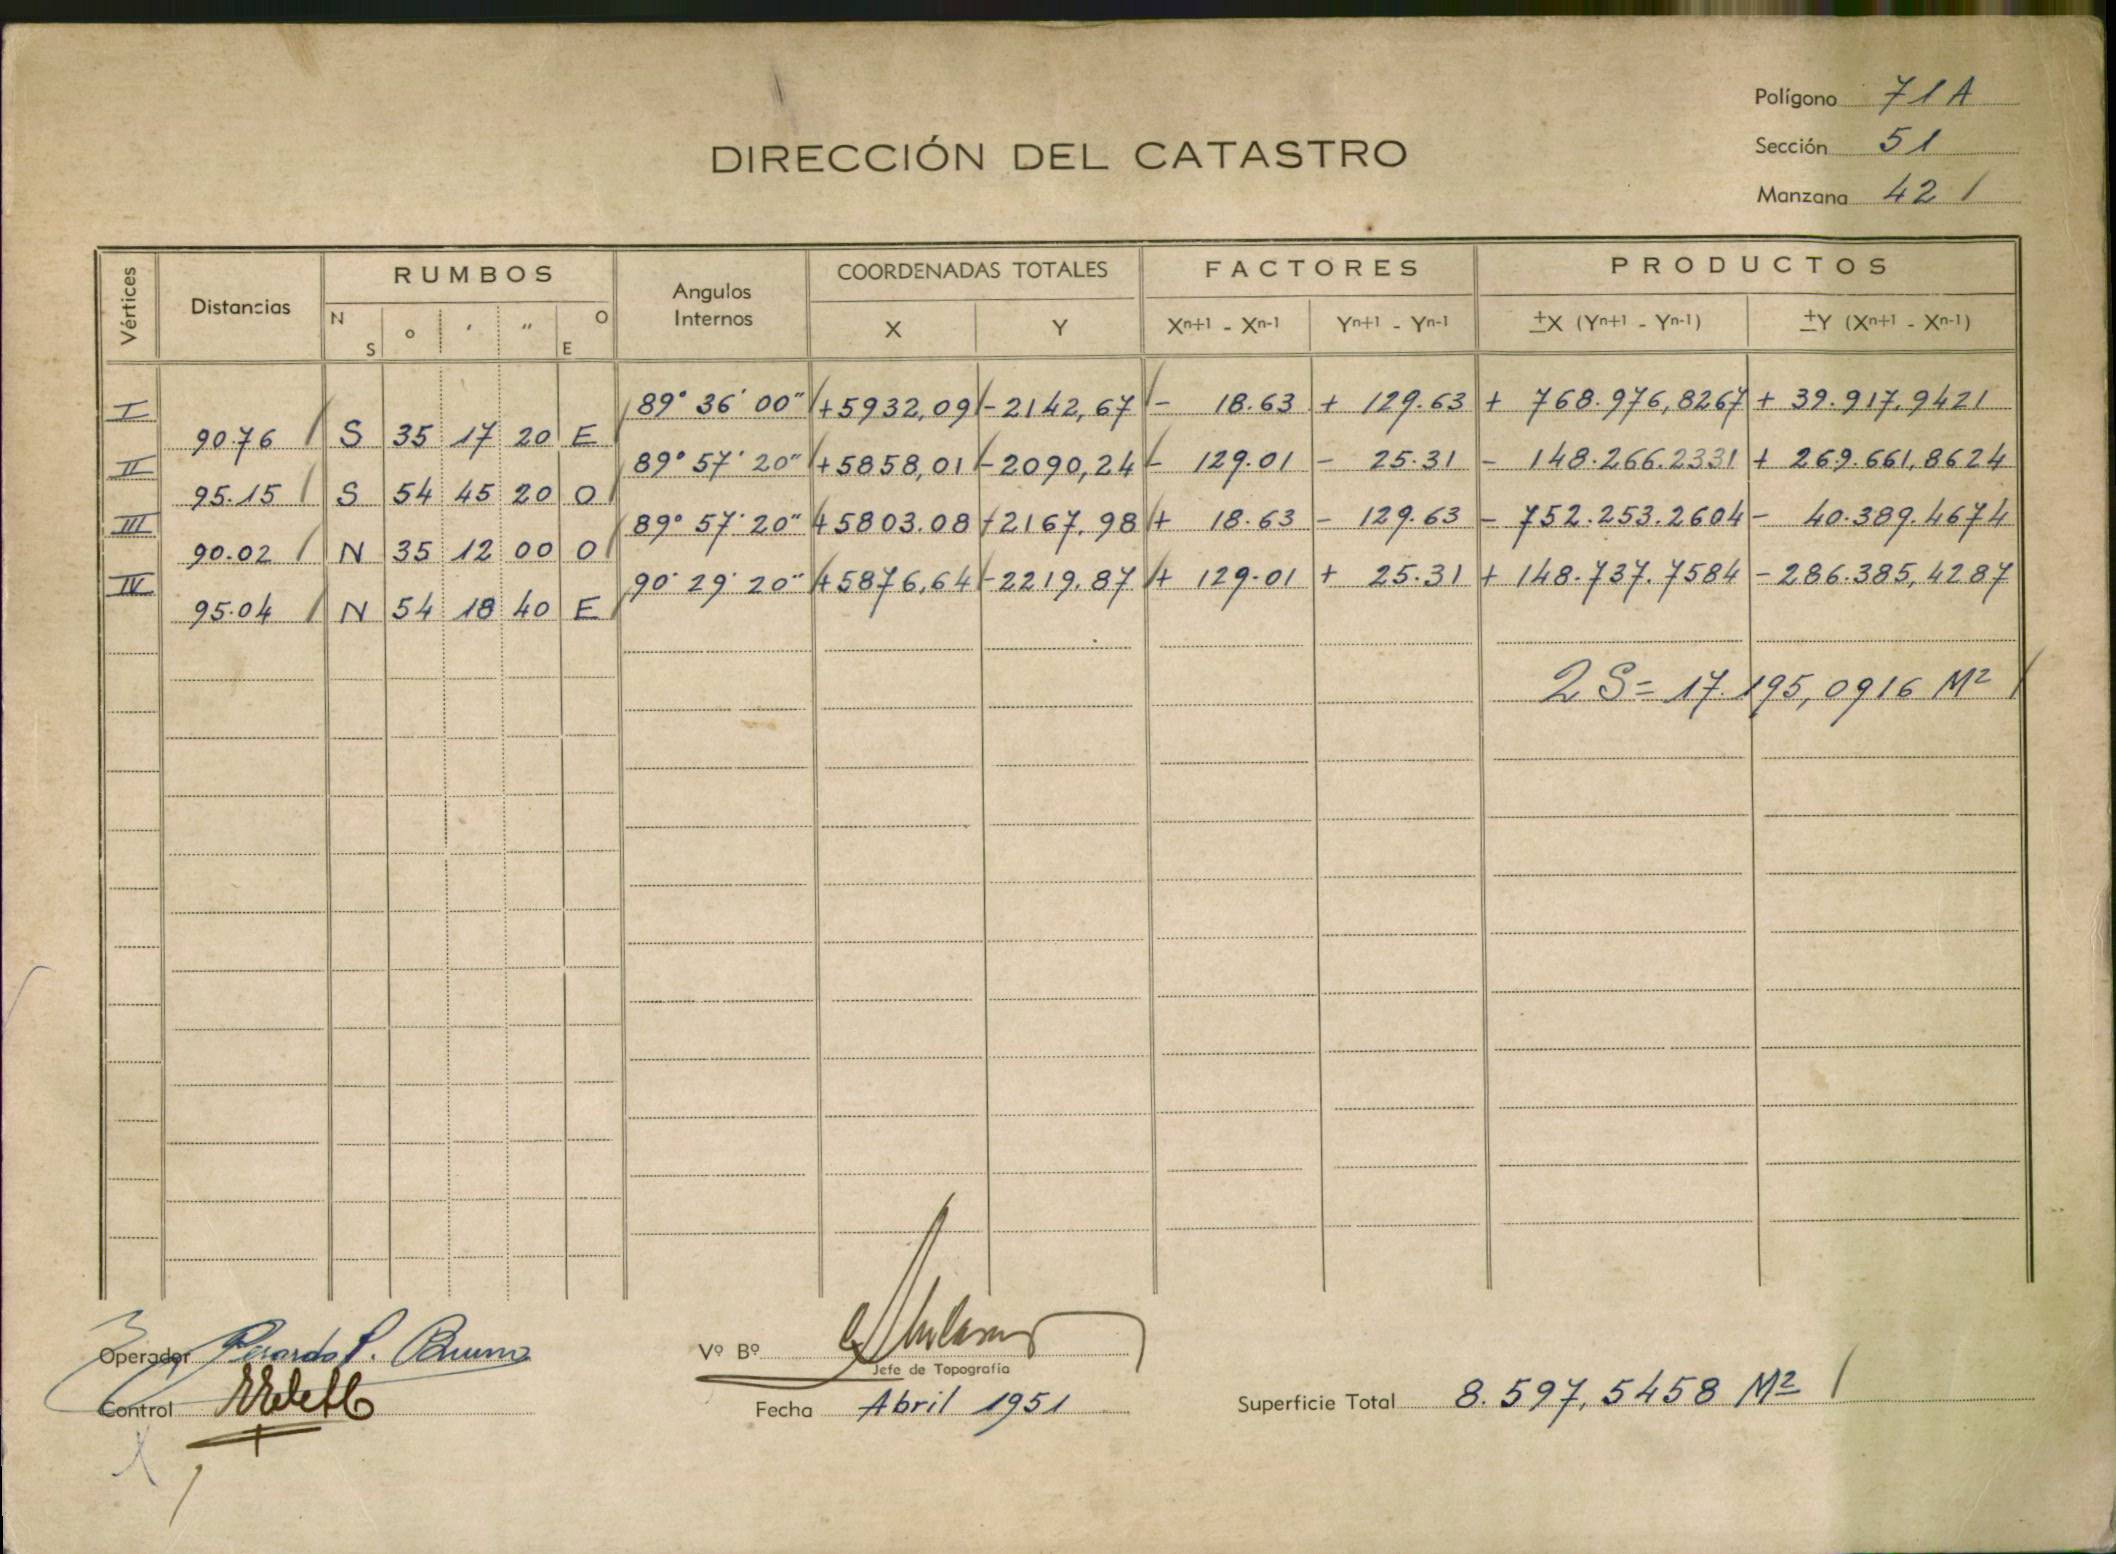 Polígono 71A
DIRECCIÓN DEL CATASTRO
Sección 51
Manzana 42
Vértices Distancias RUMBOS N S o ′ ″ O E Angulos Internos COORDENADAS TOTALES X Y FACTORES Xn+1 - Xn-1 Yn+1 - Yn-1 PRODUCTOS ±X (Yn+1 - Yn-1) ±Y (Xn+1 - Xn-1)
I 89° 36′ 00″ +5932,09 -2142,67 - 18.63 + 129.63 + 768.976,8267 + 39.917,9421
90.76 S 35 17 20 E
II 89° 57′ 20″ +5858,01 -2090,24 - 129.01 - 25.31 - 148.266.2331 + 269.661,8624
95.15 S 54 45 20 O
III 89° 57′ 20″ +5803.08 -2167,98 + 18.63 - 129.63 - 752.253.2604 - 40.389.4674
90.02 N 35 12 00 O
IV 90° 29′ 20″ +5876,64 -2219,87 + 129.01 + 25.31 + 148.737.7584 - 286.385,4287
95.04 N 54 18 40 E
2 S = 17.195,0916 M²
Operador Gerardo P. Bruno
Vº Bº
Jefe de Topografía
Control
Fecha Abril 1951
Superficie Total 8.597,5458 M²